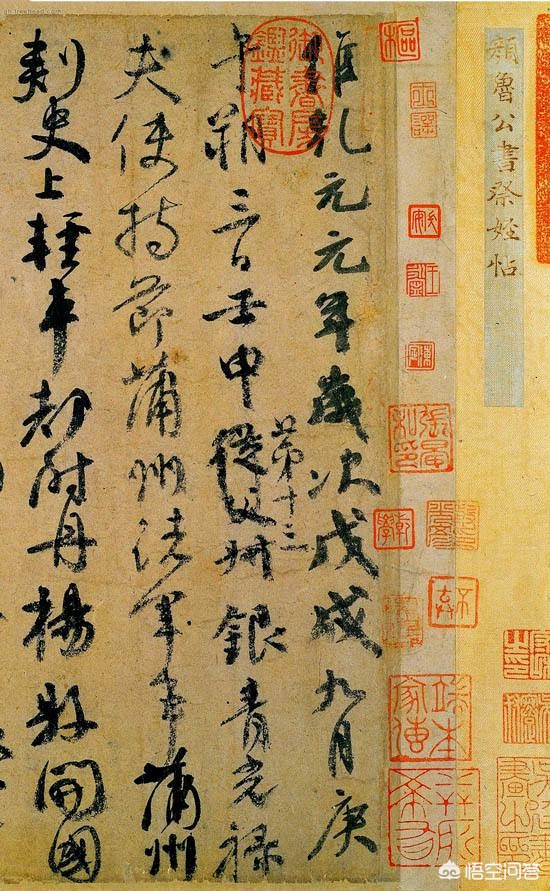 顏魯公書祭姪帖
維乾元元年歲次戊戌九月庚
午朔三日壬申第十三從父叔銀青光祿
夫使持節蒲州諸軍事蒲州
刺史上輕車都尉丹楊縣開國
御書房鑑藏寶
樞
張晏私印
端本家傳
悟空问答